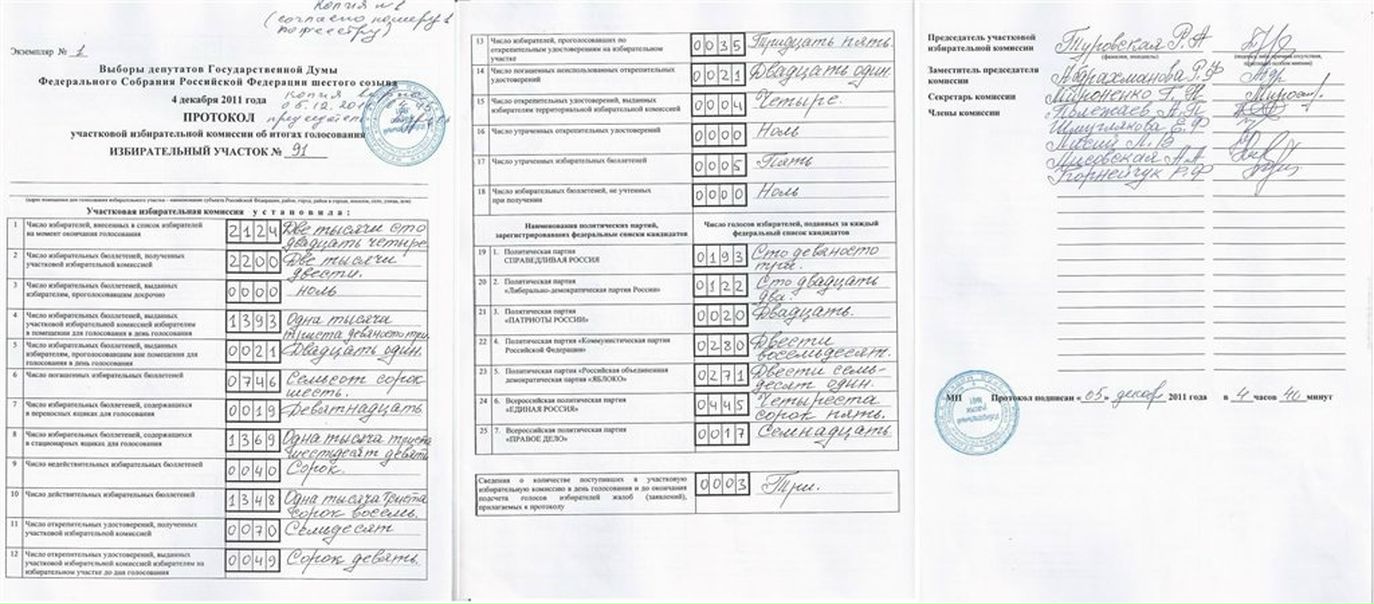 Копия №1
(согласно номеру в
по реестру)
Экземпляр № 1
Выборы депутатов Государственной Думы
Федерального Собрания Российской Федерации шестого созыва
4 декабря 2011 года
Копия верна
05.12.2011
ПРОТОКОЛ
участковой избирательной комиссии об итогах голосования
ИЗБИРАТЕЛЬНЫЙ УЧАСТОК № 91
Участковая избирательная комиссия установила:
1 Число избирателей, внесенных в список избирателей 2124 Две тысячи сто
на момент окончания голосования двадцать четыре
2 Число избирательных бюллетеней, полученных 2200 Две тысячи
участковой избирательной комиссией двести.
3 Число избирательных бюллетеней, выданных 0000 ноль
избирателям, проголосовавшим досрочно
4 Число избирательных бюллетеней, выданных 1393 Одна тысяча
участковой избирательной комиссией избирателям триста девяносто три.
в помещении для голосования в день голосования
5 Число избирательных бюллетеней, выданных 0021 Двадцать один.
избирателям, проголосовавшим вне помещения для
голосования в день голосования
6 Число погашенных избирательных бюллетеней 0746 Семьсот сорок
шесть.
7 Число избирательных бюллетеней, содержащихся 0019 Девятнадцать
в переносных ящиках для голосования
8 Число избирательных бюллетеней, содержащихся 1369 Одна тысяча триста
в стационарных ящиках для голосования шестьдесят девять
9 Число недействительных избирательных бюллетеней 0040 Сорок.
10 Число действительных избирательных бюллетеней 1348 Одна тысяча триста
сорок восемь.
11 Число открепительных удостоверений, полученных 0070 Семьдесят
участковой избирательной комиссией
12 Число открепительных удостоверений, выданных 0049 Сорок девять.
участковой избирательной комиссией избирателям на
избирательном участке до дня голосования
13 Число избирателей, проголосовавших по 0035 Тридцать пять.
открепительным удостоверениям на избирательном
участке
14 Число погашенных неиспользованных открепительных 0021 Двадцать один.
удостоверений
15 Число открепительных удостоверений, выданных 0004 Четыре.
избирателям территориальной избирательной комиссией
16 Число утраченных открепительных удостоверений 0000 Ноль
17 Число утраченных избирательных бюллетеней 0005 Пять
18 Число избирательных бюллетеней, не учтенных 0000 Ноль
при получении
Наименования политических партий, Число голосов избирателей, поданных за каждый
зарегистрировавших федеральные списки кандидатов федеральный список кандидатов
19 1. Политическая партия 0193 Сто девяносто
СПРАВЕДЛИВАЯ РОССИЯ три.
20 2. Политическая партия 0122 Сто двадцать
«Либерально-демократическая партия России» два.
21 3. Политическая партия 0020 Двадцать.
«ПАТРИОТЫ РОССИИ»
22 4. Политическая партия «Коммунистическая партия 0280 Двести
Российской Федерации» восемьдесят.
23 5. Политическая партия «Российская объединенная 0271 Двести семь-
демократическая партия «ЯБЛОКО» десят один.
24 6. Всероссийская политическая партия 0445 Четыреста
«ЕДИНАЯ РОССИЯ» сорок пять.
25 7. Всероссийская политическая партия 0017 Семнадцать
«ПРАВОЕ ДЕЛО»
Сведения о количестве поступивших в участковую 0003 Три.
избирательную комиссию в день голосования и до окончания
подсчета голосов избирателей жалоб (заявлений),
прилагаемых к протоколу
Председатель участковой
избирательной комиссии Туровская Р.А
(фамилия, инициалы)
Заместитель председателя
комиссии Абдрахманова Р.Ф
Секретарь комиссии Мироненко Г.Н
Члены комиссии Полежаев А.П
Шмуглякова Е.Ф
Лисовская А.А
Корнейчук Р.Ф
МП Протокол подписан «05» декабр 2011 года в 4 часов 40 минут